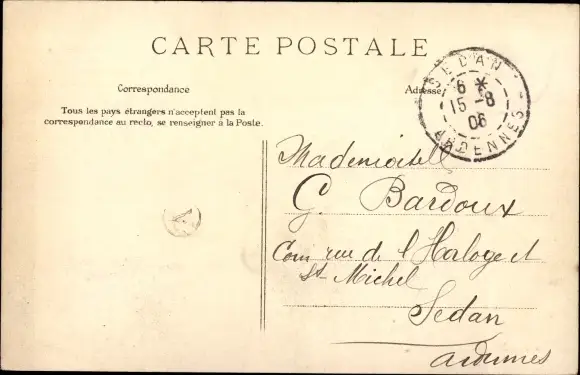 CARTE POSTALE
Correspondance
Tous les pays étrangers n'acceptent pas la
correspondance au recto, se renseigner à la Poste.
Adresse
SEDAN
6 *
15 -8
06
ARDENNES
Mademoiselle
G. Bardoux
Coin rue de l'Horloge et
St Michel
Sedan
Ardennes
A